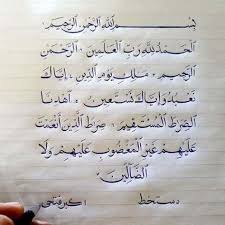 بِسْمِ اللهِ الرَّحْمٰنِ الرَّحِيْمِ
اَلْحَمْدُ لِلّٰهِ رَبِّ الْعَالَمِيْنَ ۔ الرَّحْمٰنِ
الرَّحِيْمِ ۔ مٰلِكِ يَوْمِ الدِّيْنِ ۔ اِيَّاكَ
نَعْبُدُ وَاِيَّاكَ نَسْتَعِيْنُ ۔ اِهْدِنَا
الصِّرَاطَ الْمُسْتَقِيْمَ ۔ صِرَاطَ الَّذِيْنَ اَنْعَمْتَ
عَلَيْهِمْ غَيْرِ الْمَغْضُوْبِ عَلَيْهِمْ وَلَا
الضَّالِّيْنَ
دستخط اکبر فتحی